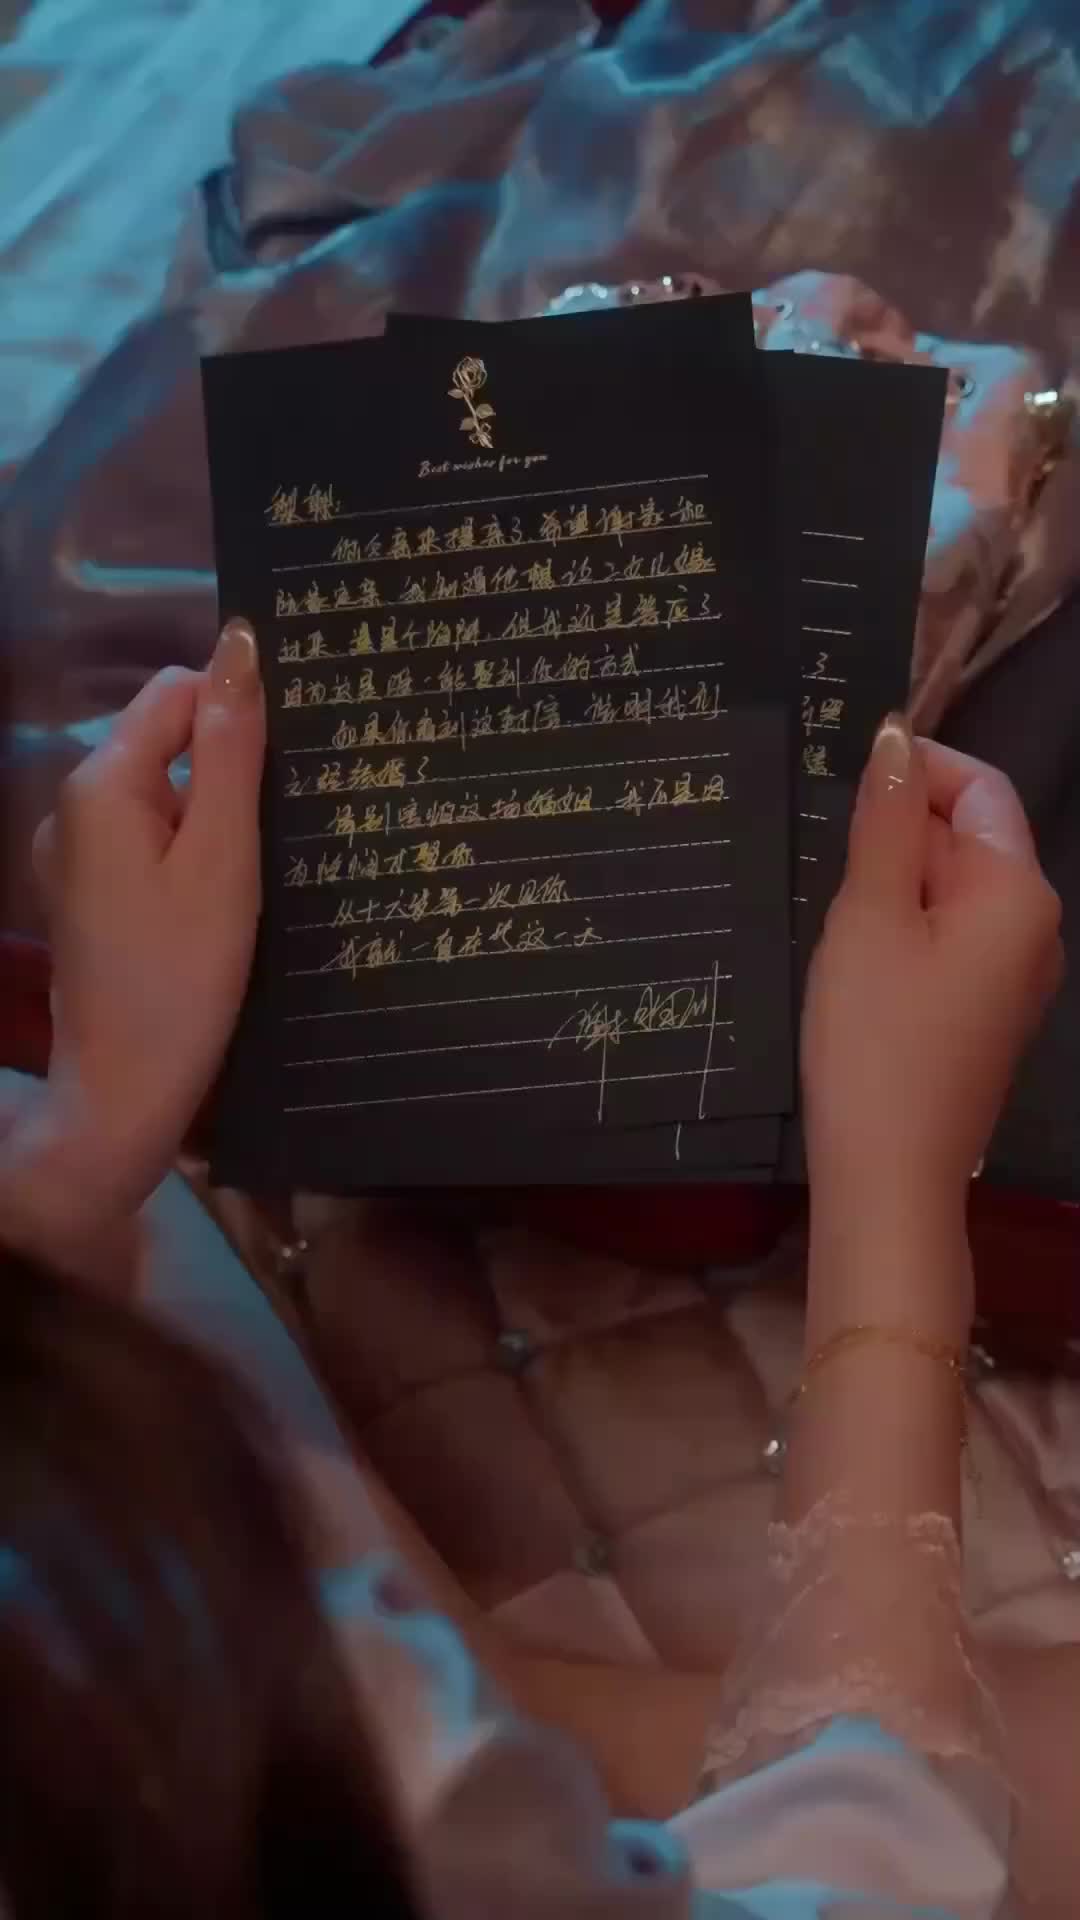 Best wishes for you
你父亲来提亲了.希望谢家和
阮家定亲.我知道他想让二女儿嫁
过来.这是个陷阱.但我还是答应了
因为这是唯一能娶到你的方式
如果你看到这封信.说明我们
已经结婚了
请别害怕这场婚姻 我不是因
为
才娶你
从十六岁第一次见你
我就一直在等这一天
谢
了